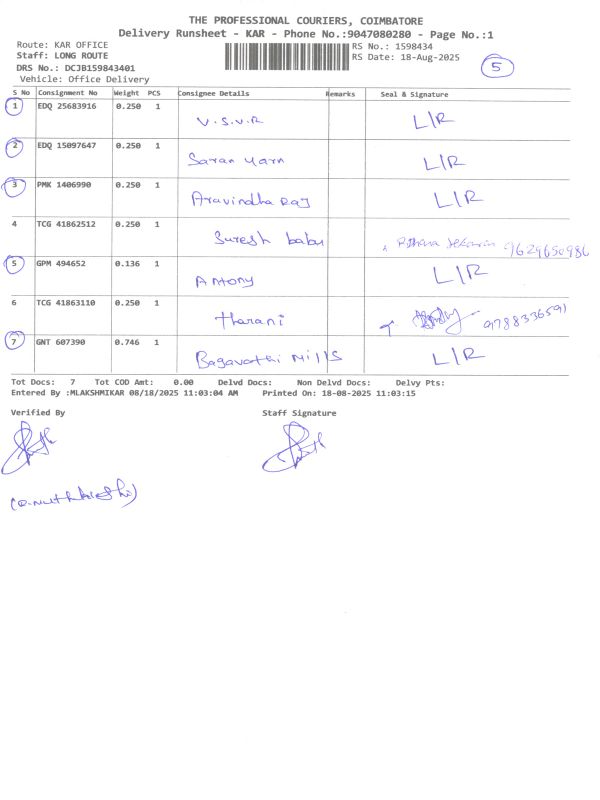 THE PROFESSIONAL COURIERS, COIMBATORE
Delivery Runsheet - KAR - Phone No.:9047080280 - Page No.:1
Route: KAR OFFICE RS No.: 1598434
Staff: LONG ROUTE RS Date: 18-Aug-2025 5
DRS No.: DCJB159843401
Vehicle: Office Delivery
S No Consignment No Weight PCS Consignee Details Remarks Seal & Signature
1 EDQ 25683916 0.250 1 V.S.V.R L/R
2 EDQ 15097647 0.250 1 Saran Yarn L/R
3 PMK 1406990 0.250 1 Aravindha Raj L/R
4 TCG 41862512 0.250 1 Suresh babu 9629650986
5 GPM 494652 0.136 1 Antony L/R
6 TCG 41863110 0.250 1 Tharani 9788336591
7 GNT 607390 0.746 1 Bagavathi Mills L/R
Tot Docs: 7 Tot COD Amt: 0.00 Delvd Docs: Non Delvd Docs: Delvy Pts:
Entered By :MLAKSHMIKAR 08/18/2025 11:03:04 AM Printed On: 18-08-2025 11:03:15
Verified By Staff Signature